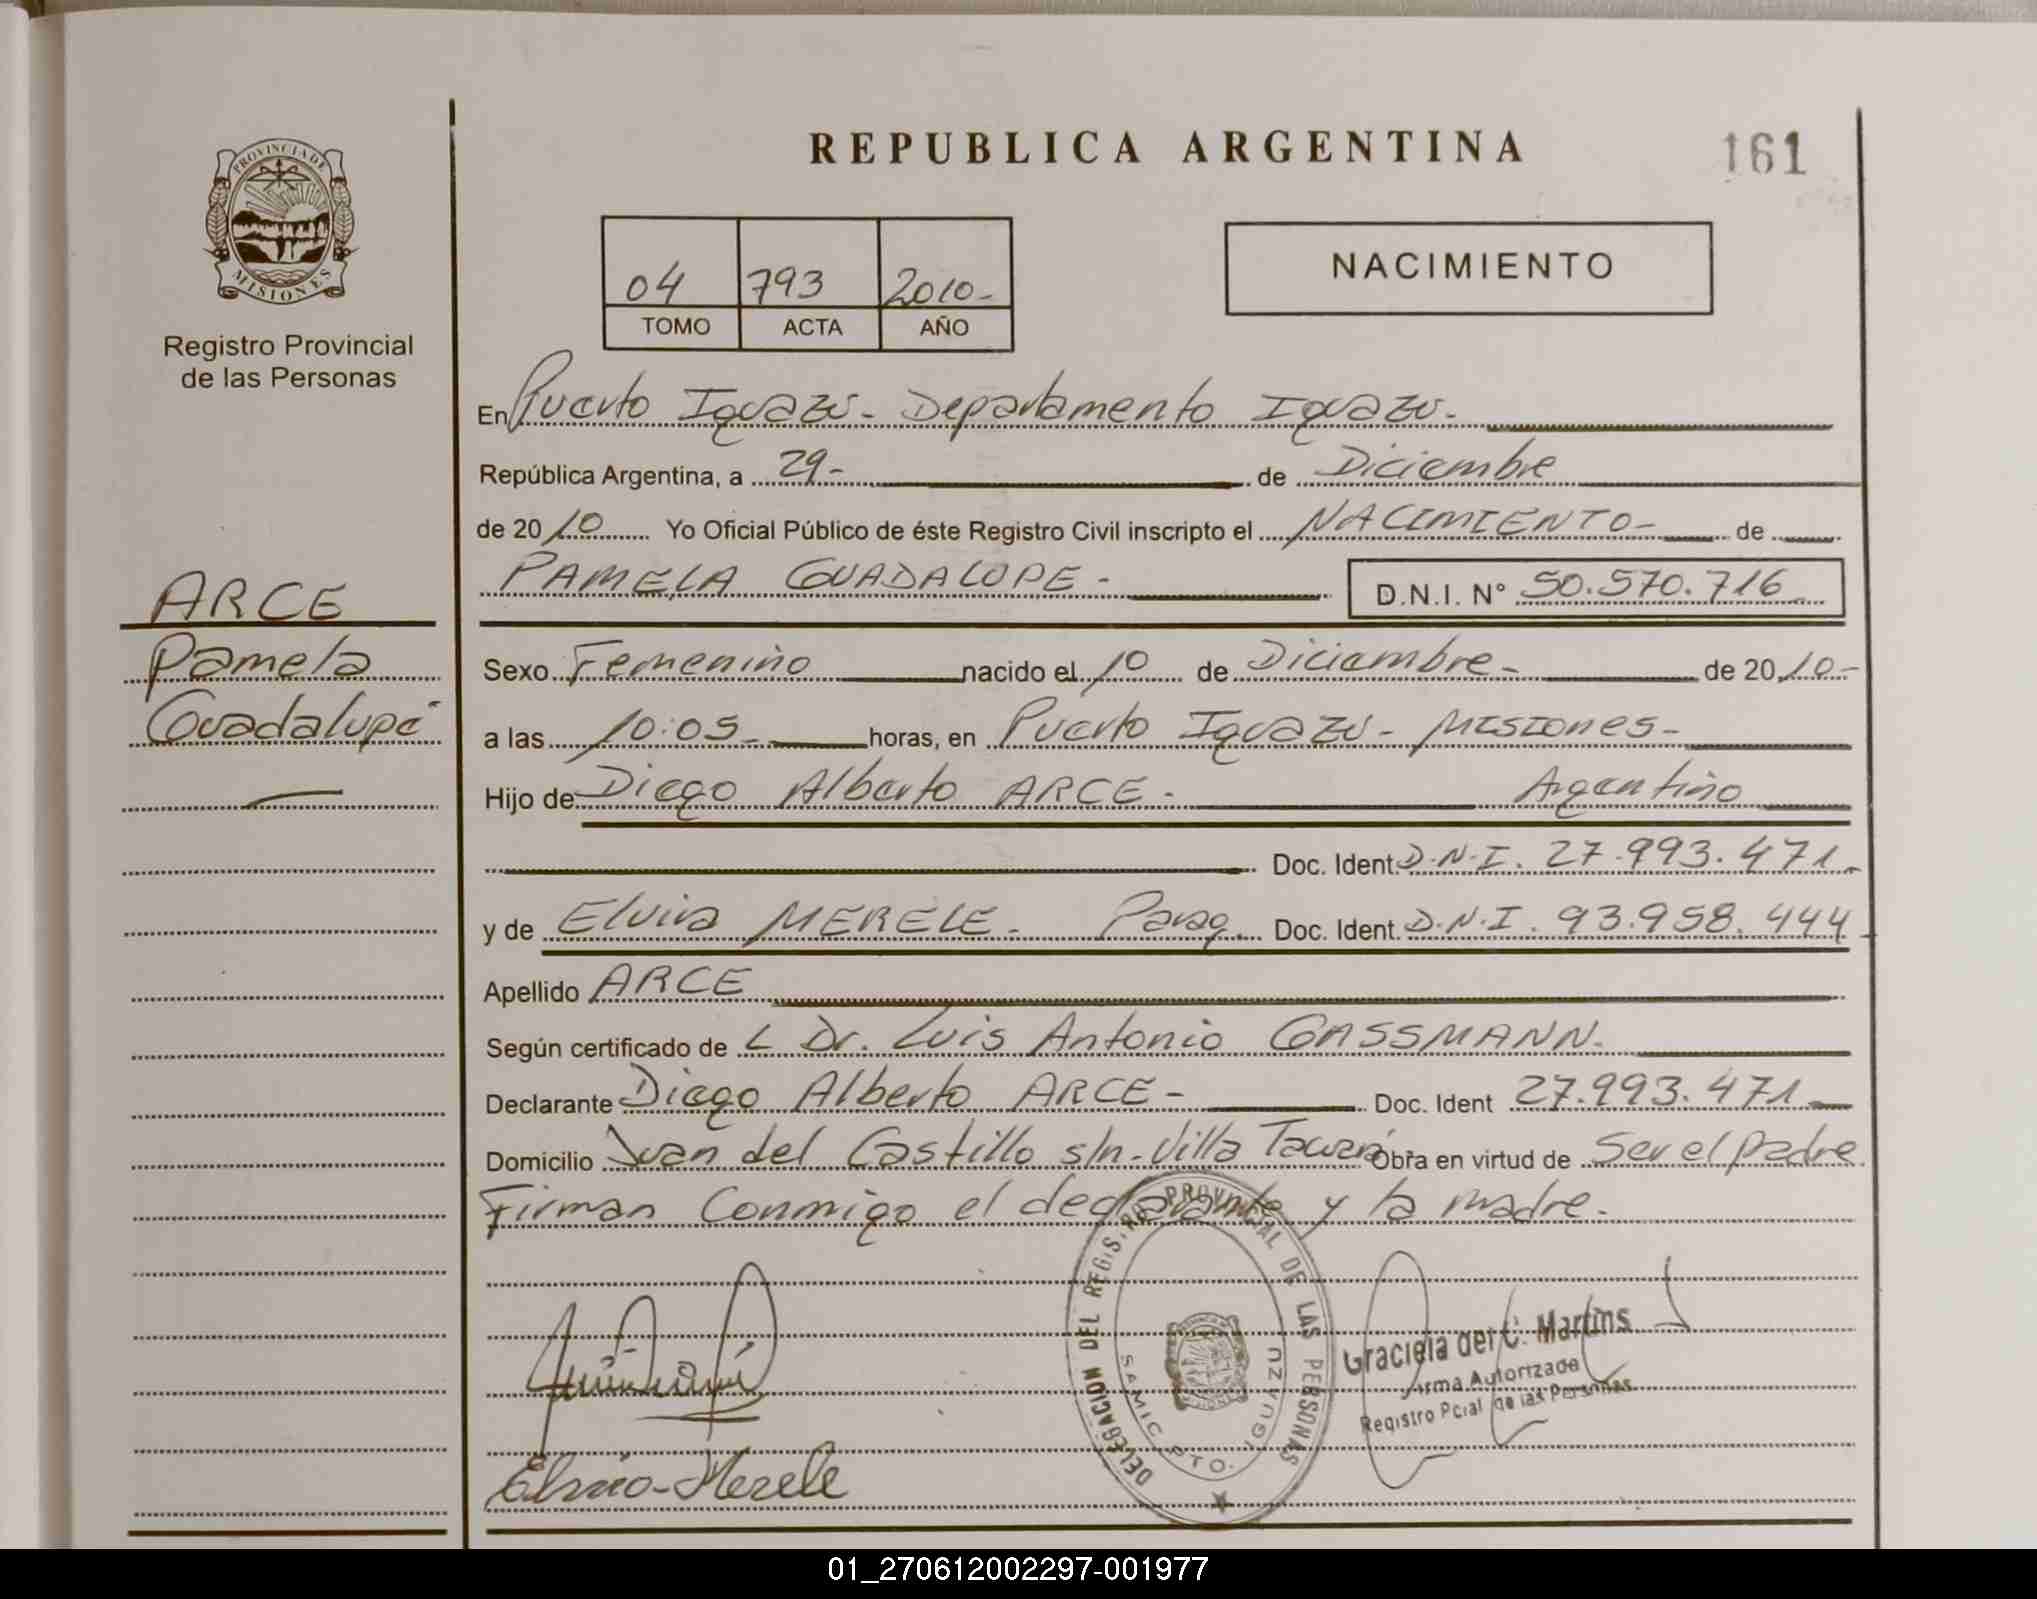 REPUBLICA ARGENTINA
161
PROVINCIA DE
MISIONES
Registro Provincial
de las Personas
04 793 2010-
TOMO ACTA AÑO
NACIMIENTO
En Puerto Iguazú - Departamento Iguazú-
República Argentina, a 29- de Diciembre
de 2010 Yo Oficial Público de éste Registro Civil inscripto el NACIMIENTO- de
PAMELA GUADALUPE - D.N.I. N° 50.570.716
ARCE
Pamela
Guadalupe
Sexo Femenino nacido el 10 de Diciembre- de 2010-
a las 10:05- horas, en Puerto Iguazú - Misiones-
Hijo de Diego Alberto ARCE - Argentino
Doc. Ident. D.N.I. 27.993.471-
y de Elvira MERELE - Parag. Doc. Ident. D.N.I. 93.958.444-
Apellido ARCE
Según certificado de L Dr. Luis Antonio GASSMANN.
Declarante Diego Alberto ARCE - Doc. Ident 27.993.471
Domicilio Juan del Castillo s/n. Villa Tacuará Obra en virtud de Ser el padre
Firman Conmigo el declarante y la madre.
DELEGACION DEL REGISTRO PROVINCIAL DE LAS PERSONAS
SAMIC PTO. IGUAZU
Graciela del C. Martins
Firma Autorizada
Registro Pcial de las Personas
Elvira Merele
01_270612002297-001977